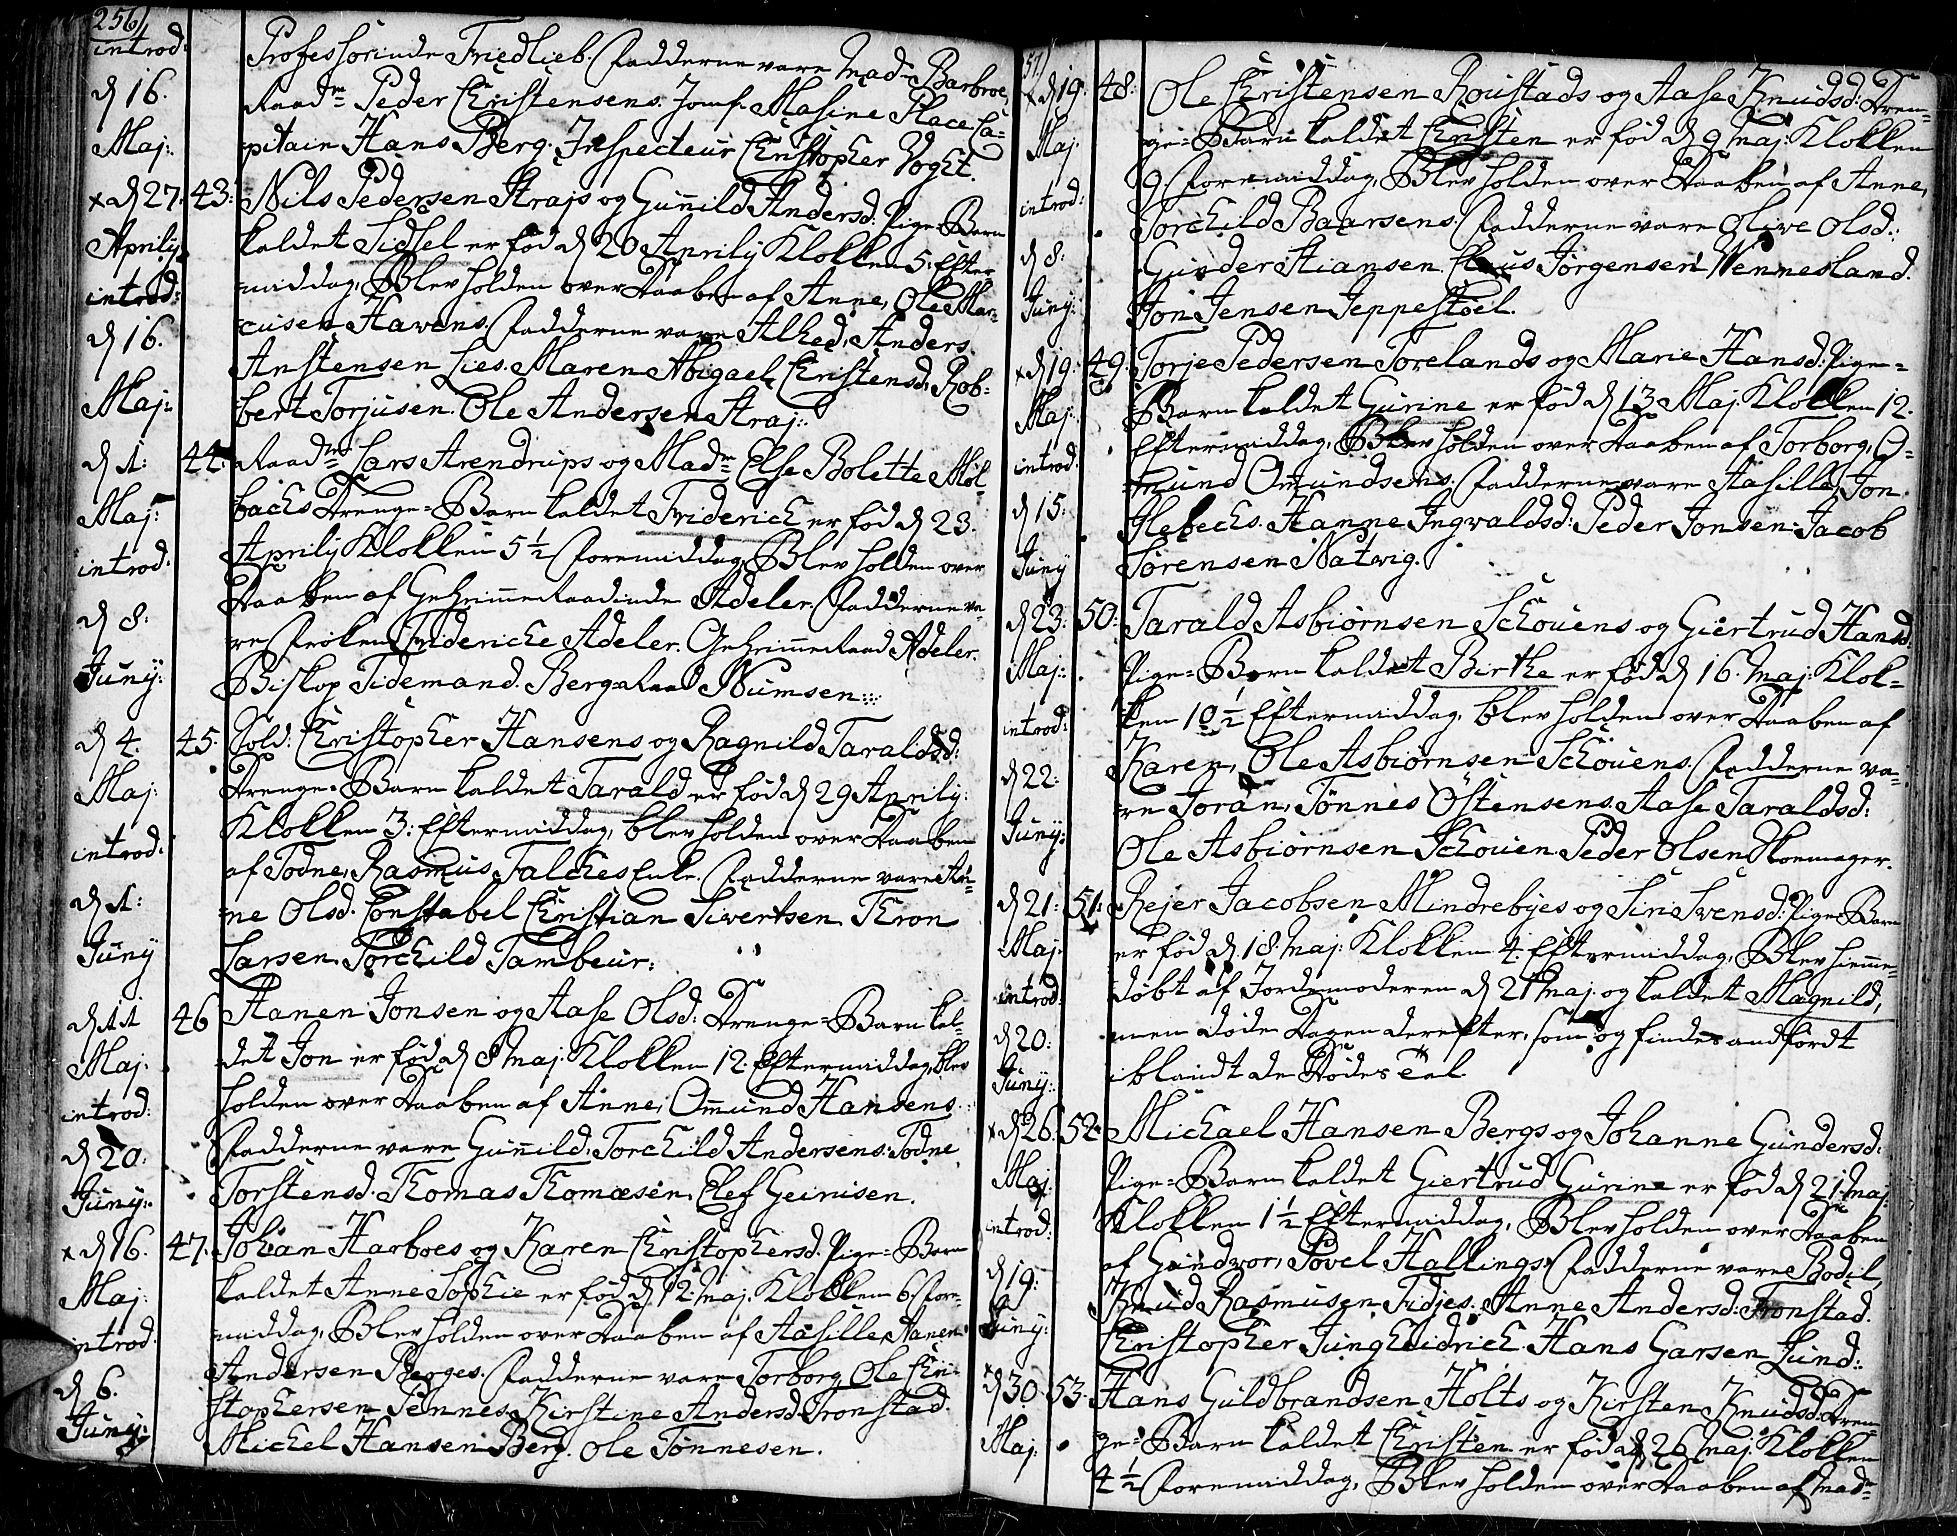 256
introd:
d 16.
Maj:
Professorinde Friedlieb. Fadderne vare Mad: Barbroe,
Raadm Peder Christensens. Jomf: Masine Place Ca-
pitain Hans Berg. Inspecteur Christopher Voget.
x d 27. 43: Nils Pedersen Strajs og Gunnild Andersd: Pige-Barn
Aprilij kaldet Sidsel er fød d 20 Aprilij Klokken 5. Efter
introd: middag, Blev holden over Daaben af Anne, Ole Mar-
cusen Havens. Fadderne vare Alhed, Anders
d 16. Anstensen Lies. Maren Abigael Christensd. Rob-
Maj: bert Torjusen. Ole Andersen Straj:
d 1: 44. Raadm Lars Arendrups og Madm Else Bolette Møl-
Maj: bachs Drenge-Barn kaldet Friderich er fød d 23.
Aprilij Klokken 5 1/2 Foremiddag, Blev holden over
introd: Daaben af Geheimme Raadinde Adeler. Fadderne va-
d 8: re Frøken Frideriche Adeler. Geheimme Raad Adeler.
Juny: Biskop Tidemand. Berg-Raad Numsen:
d 4. 45. Sold: Christopher Hansens og Ragnild Taraldsd:
Maj: Drenge-Barn kaldet Tarald er fød d 29 Aprilij:
Klokken 3: Eftermiddag, blev holden over Daaben
introd: af Todne, Rasmus Falches Enke. Fadderne vare An-
d 1: ne Olsd. Constabel Christian Sivertsen. Thron
Juny Larsen. Torchild Tambeur:
d 11 46 Hanen Jonsen og Aase Olsd: Drenge-Barn kal-
Maj. det Jon er fød d 8 Maj: Klokken 12: Eftermiddag, blev
introd: holden over Daaben af Anne, Omund Hansens.
d 20: Fadderne vare Gunnild, Torchild Andersens. Todne
Juny: Torstensd. Thomas Thomæsen. Elef Geinisen.
x d 16. 47. Johan Harboes og Karen Christophersd. Pige-Barn
Maj: kaldet Anne Sophie er fød d 12. Maj. Klokken 6 Fore-
introd: middag, Blev holden over Daaben af Aasille, Hanen
Andersen Berges. Fadderne vare Torborg, Ole Chri-
d 6. stophersen Pennes. Kirstine Andersd. Tronstad.
Juny: Michel Hansen Berg. Ole Tønnesen.
57
x d 19. 48. Ole Christensen Roustads og Aase Knudsd: Dren-
Maj. ge-Barn kaldet Christen er fød d 9 Maj: Klokken
9 Foremiddag, Blev holden over Daaben af Anne,
introd: Torchild Baarsens. Fadderne vare Olive Olsd:
d 8: Gunder Stiansen. Claus Jørgensen Wennesland.
Juny: Jon Jensen Jeppestøel.
x d 19. 49. Torje Pedersen Torelands og Marie Hansd. Pige-
Maj: Barn kaldet Gurine er fød d 13 Maj. Klokken 12.
introd. Eftermiddag, Blev holden over Daaben af Torborg, O-
mund Omundsens. Fadderne vare Aasille, Jon
d 15: Slebechs. Hanne Ingvaldsd: Peder Jonsen. Jacob
Juny Sørensen Natvig.
d 23: 50: Tarald Asbiørnsen Schouens og Giertrud Hansd:
Maj: Pige-Barn kaldet Birthe er fød d 16. Maj: Klok-
introd: ken 10 1/2 Eftermiddag, blev holden over Daaben af
Karen, Ole Asbiørnsen Schouens. Fadderne va-
d 22: re Joran, Tønnes Østensens. Aase Taraldsd:
Juny: Ole Asbiørnsen Schouen. Peder Olsen Skomager.
d 21: 51: Rejer Jacobsen Mindrebyes og Siri Svensd: Pige-Barn
Maj: er fød d 18. Maj: Klokken 4. Eftermiddag, Blev hiemme-
introd: døbt af Jordemoderen d 21 Maj: og kaldet Magnild,
d 20: men døde Dagen derefter, som og findes andført
Juny: iblandt de Dødes Tal.
x d 26. 52. Michael Hansen Bergs og Johanne Gundersd:
Maj: Pige-Barn kaldet Giertrud Gurine er fød d 21. Maj:
introd: Klokken 1 1/2 Eftermiddag, Blev holden over Daaben
af Gundvor, Povel Hallings. Fadderne vare Bodil,
d 19: Knud Rasmusen Tidjes. Anne Andersd: Tronstad.
Juny: Christopher Jungheidrich. Hans Garsen Lund:
x d 30 53. Hans Guldbrandsen Holts og Kirsten Knudsd: Dren-
Maj. ge-Barn kaldet Christen er fød d 26 Maj. Klokken
4 1/2 Foremiddag, Blev holden over Daaben af Madm